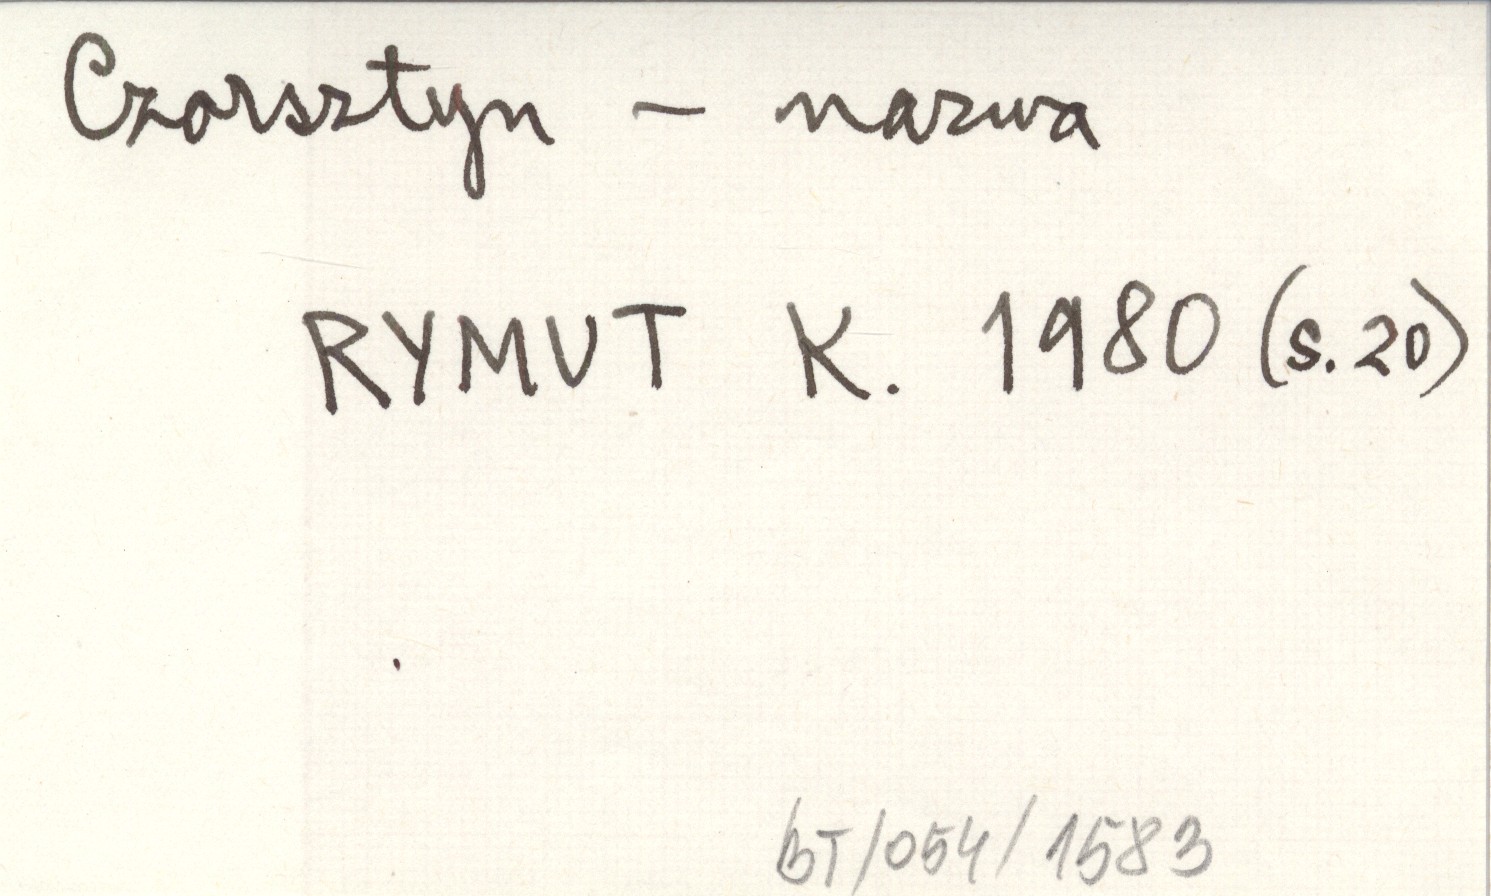 Czorsztyn – nazwa
RYMUT K. 1980 (s. 20)
BT/054/1583